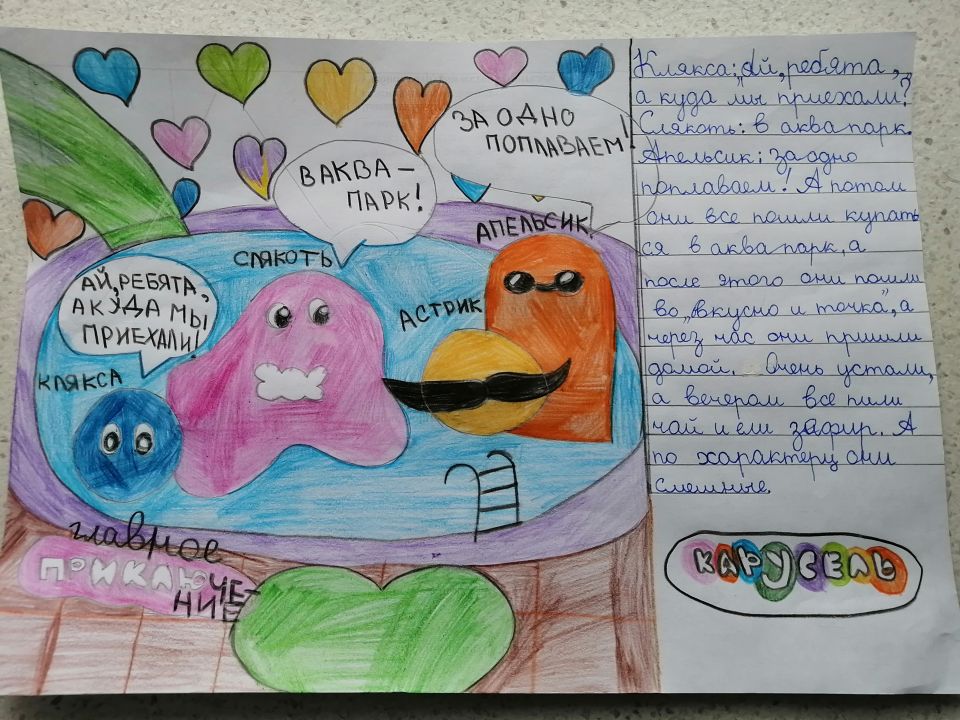 ЗА ОДНО
ПОПЛАВАЕМ!
В АКВА-
ПАРК!
АЙ, РЕБЯТА,
А КУДА МЫ
ПРИЕХАЛИ!
СЛЯКОТЬ
АПЕЛЬСИК
АСТРИК
КЛЯКСА
главное
ПРИКЛЮЧЕ-
НИЕ
Клякса: „Ай, ребята,
а куда мы приехали?
Слякоть: в аква парк.
Апельсик: заодно
поплаваем! А потом
они все пошли купать
ся в аква парк, а
после этого они пошли
во „вкусно и точка", а
через час они пришли
домой. Очень устали,
а вечером все пили
чай и ели зефир. А
по характеру они
смешные.
КАРУСЕЛЬ